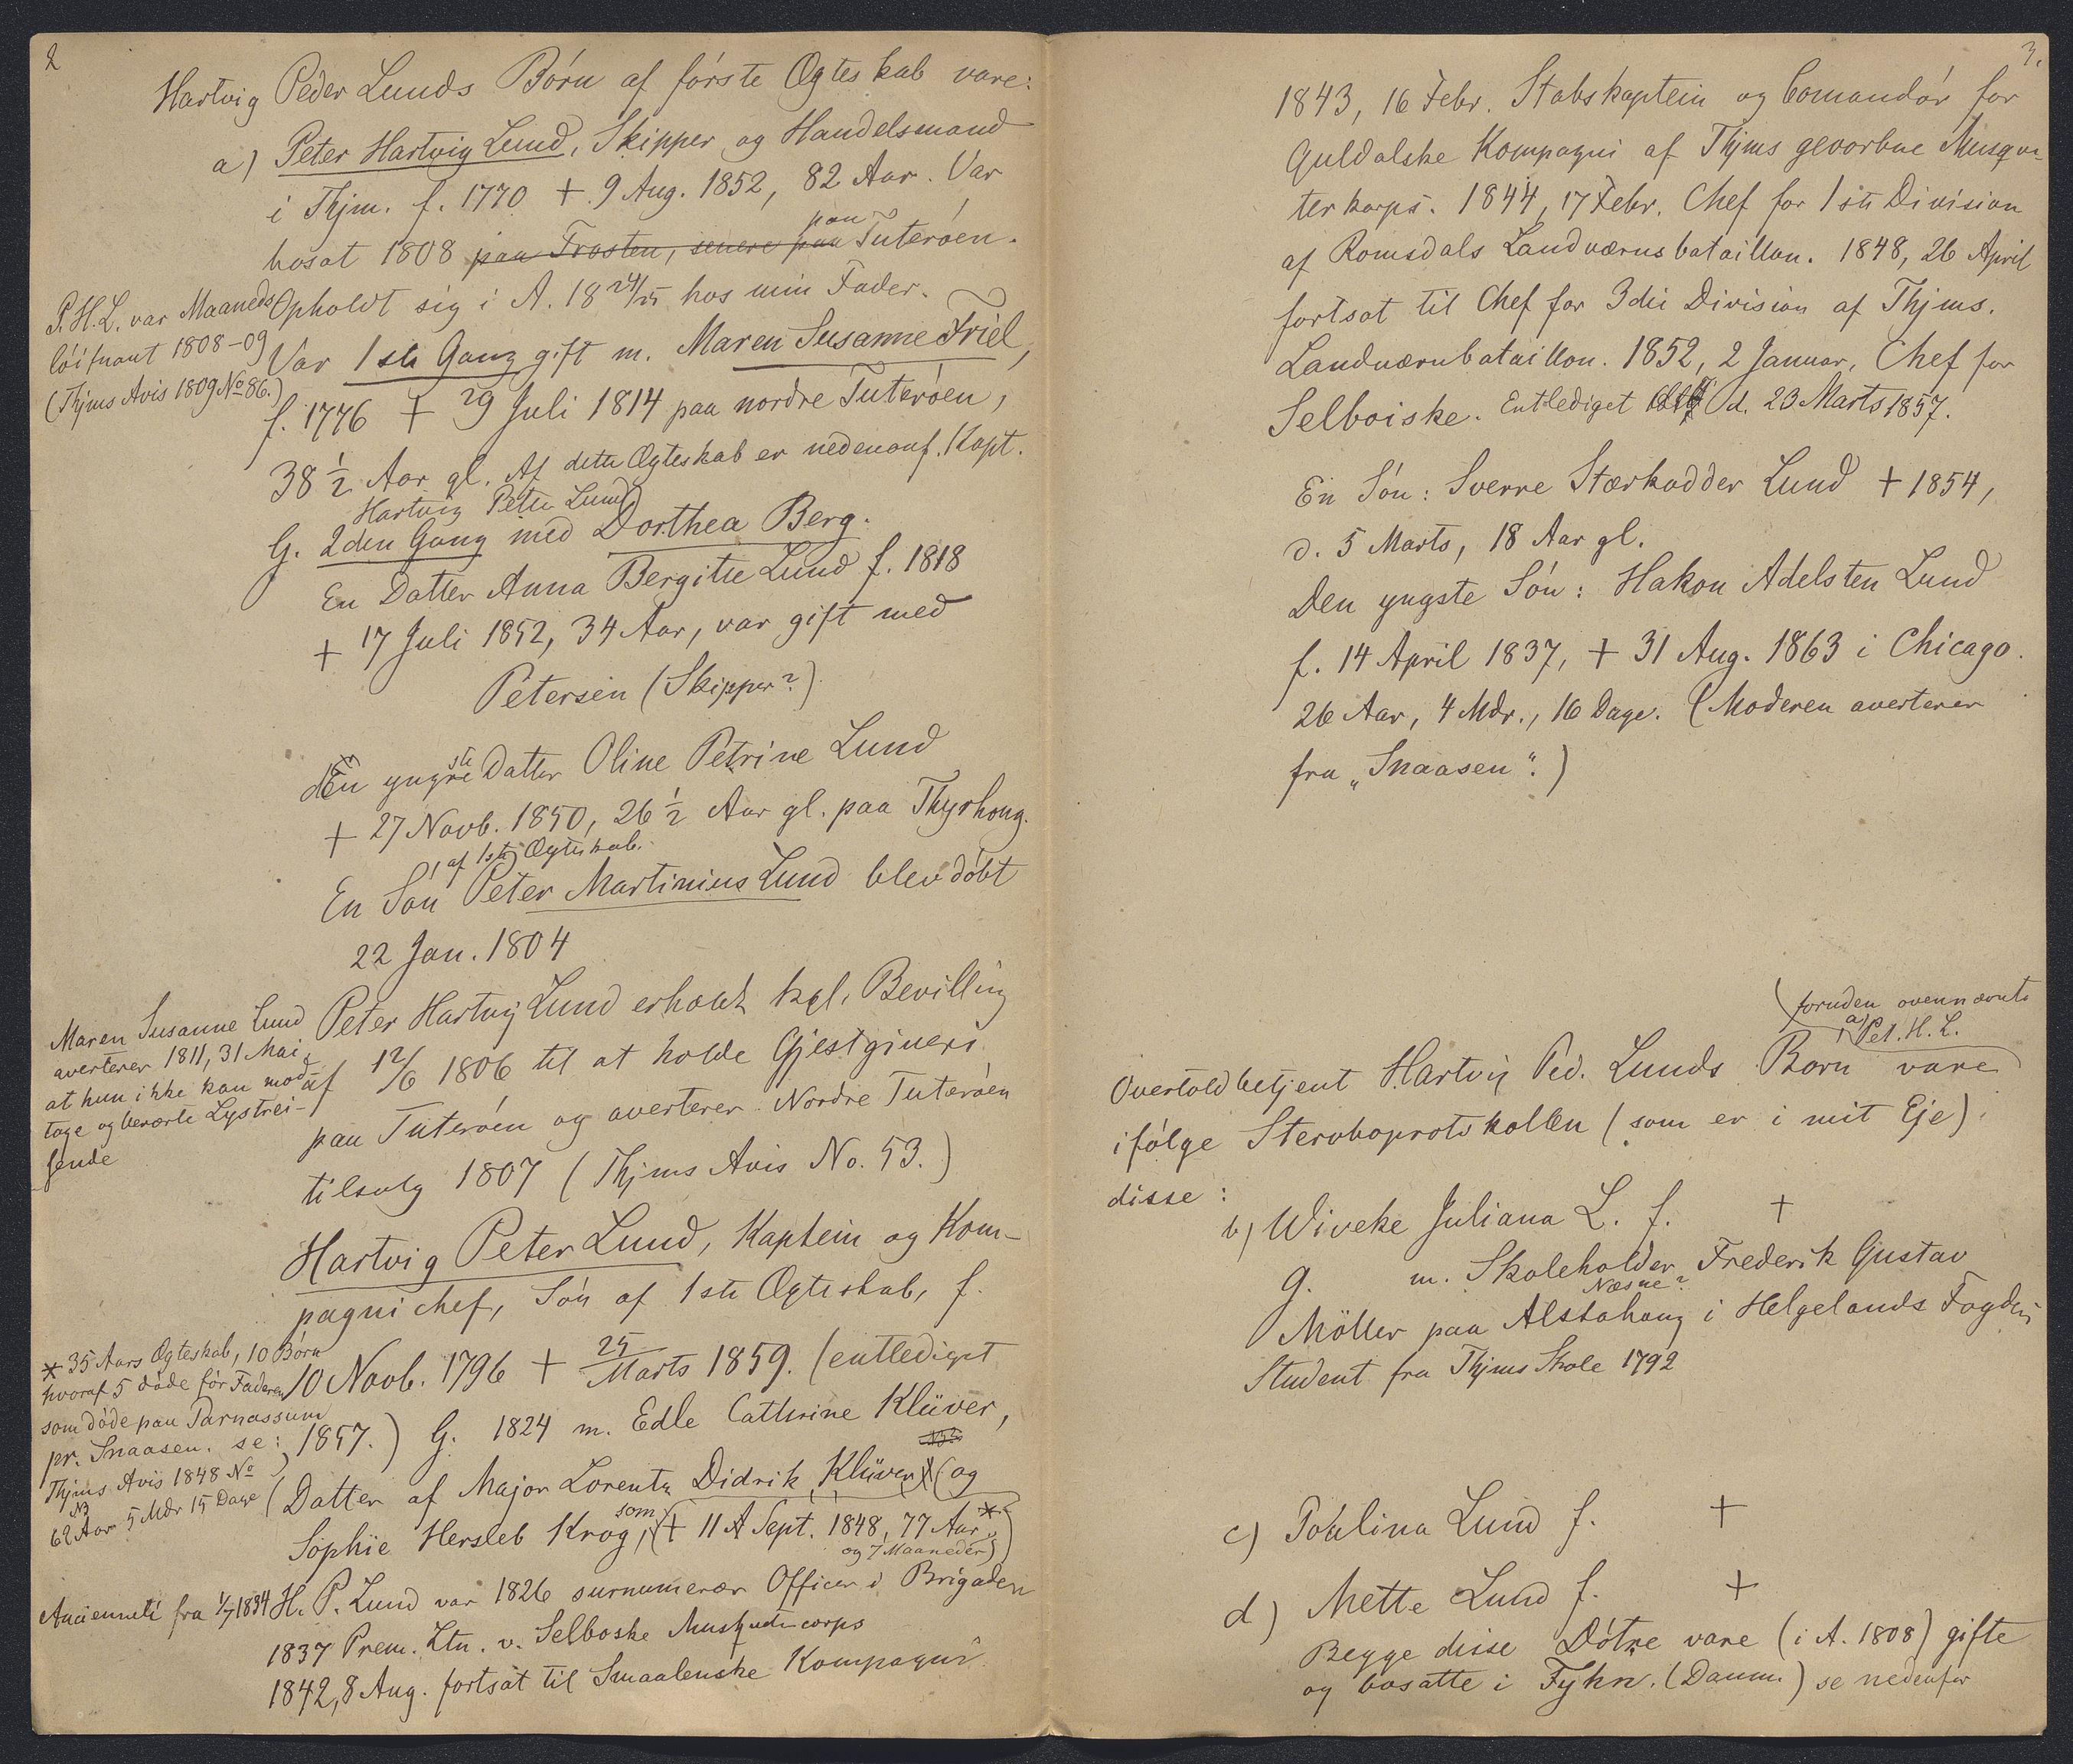 2
Hartvig Peder Lunds Börn af förste Ogteskab vare:
a) Peter Hartvig Lund, Skipper og Handelsmand
i Thjm. f. 1770 + 9 Aug. 1852, 82 Aar. Var
bosat 1808 paa Frosten, senere paa paa Tuteröen.
Opholdt sig i A. 18 24/25 hos min Fader.
P. H. L. var Maaneds
löitnant 1808-09
(Thjms Avis 1809 No 86.)
Var 1ste Gang gift m. Maren Susanne Friel,
f. 1776 + 29 Juli 1814 paa nordre Tuteröen,
38 1/2 Aar gl. Af dette Ogteskab er nedenanf. Kapt.
Hartvig Peter Lund
G. 2den Gang med Dorthea Berg.
En Datter Anna Bergitte Lund f. 1818
+ 17 Juli 1852, 34 Aar, var gift med
Petersen (Skipper?)
den yngste Datter Oline Petrine Lund
+ 27 Novb. 1850, 26 1/2 Aar gl. paa Thyrhoug.
af 1ste Ogteskab.
En Sön Peter Martinius Lund blev döbt
22 Jan. 1804
Maren Susanne Lund
averterer 1811, 31 Mai,
at hun ikke kan mod-
tage og beværte Lystrei-
sende
Peter Hartvig Lund erholdt kgl. Bevilling
af 12/6 1806 til at holde Gjestgiveri
paa Tuteröen og averterer Nordre Tuteröen
tilsalg 1807 (Thjms Avis No. 53.)
Hartvig Peter Lund, Kaptein og Kom-
pagnichef, Sön af 1ste Ogteskab, f.
10 Novb. 1796 + 25 Marts 1859. (entlediget
1857.) G. 1824 m. Edle Cathrine Klüver,
(Datter af Major Lorentz Didrik Klüver) (og
Sophie Hersleb Krog, som (+ 11 Sept. 1848, 77 Aar *
og 7 Maaneder))
* 35 Aars Ogteskab, 10 Börn
hvoraf 5 döde för Faderen
som döde paa Parnassum
pr. Snaasen. se:
Thjms Avis 1848 No
62 Aar 5 Mdr 15 Dage
Ancienneté fra 1/7 1834
H. P. Lund var 1826 surnumerær Officer i Brigaden
1837 Prem. Ltn. v. Selboske Musketercorps
1842, 8 Aug. fortsat til Smaalenske Kompagni
3.
1843, 16 Febr. Stabskaptein og Comandör for
Guldalske Kompagni af Thjms gevorbne Musque-
terkorps. 1844, 17 Febr. Chef for 1ste Division
af Romsdals Landværnsbataillon. 1848, 26 April
fortsat til Chef for 3die Division af Thjms.
Landværnbataillon. 1852, 2 Januar, Chef for
Selboiske. Entlediget d. 23 Marts 1857.
En Sön: Sverre Stærkodder Lund + 1854,
d. 5 Marts, 18 Aar gl.
Den yngste Sön: Hakon Adelsten Lund
f. 14 April 1837, + 31 Aug. 1863 i Chicago.
26 Aar, 4 Mdr., 16 Dage. (Moderen averterer
fra „Snaasen“.)
(foruden ovennævnte
a) Pet. H. L.
Overtoldbetjent Hartvig Ped. Lunds Børn vare
ifölge Sterboprotokollen (som er i mit Eje)
disse:
b) Wiveke Juliana L. f. +
g. m. Skoleholder Frederik Gustav
Næsne?
Möller paa Alstahaug i Helgelands Fogderi
Student fra Thjms Skole 1792
c) Paulina Lund f. +
d) Mette Lund f. +
Begge disse Dötre vare (i A. 1808) gifte
og bosatte i Fyhn. (Danm.) se nedenfor